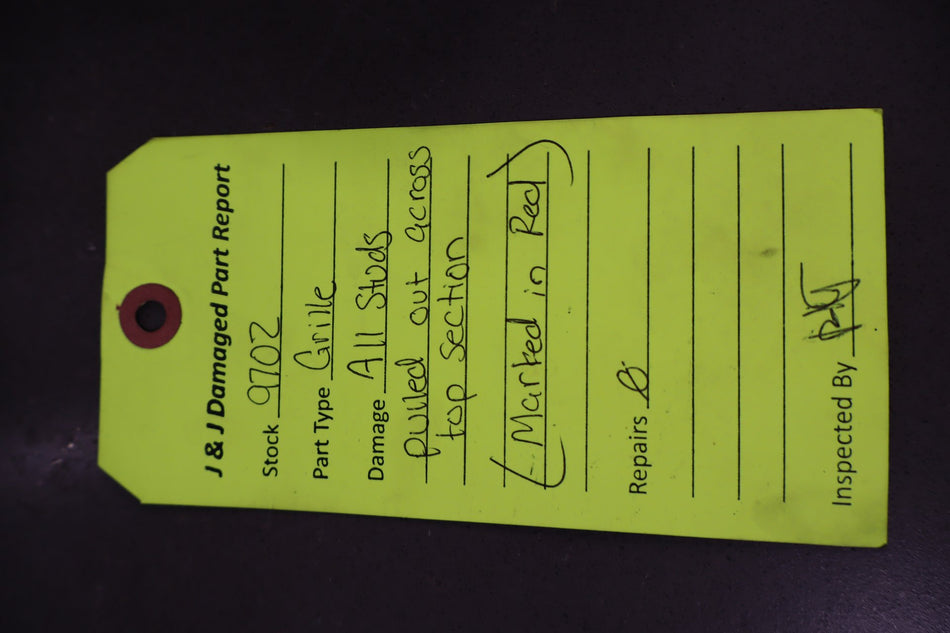 J & J Damaged Part Report
Stock 9702
Part Type Grille
Damage All Studs
pulled out across
top section
(Marked in Red)
Repairs Ø
Inspected By